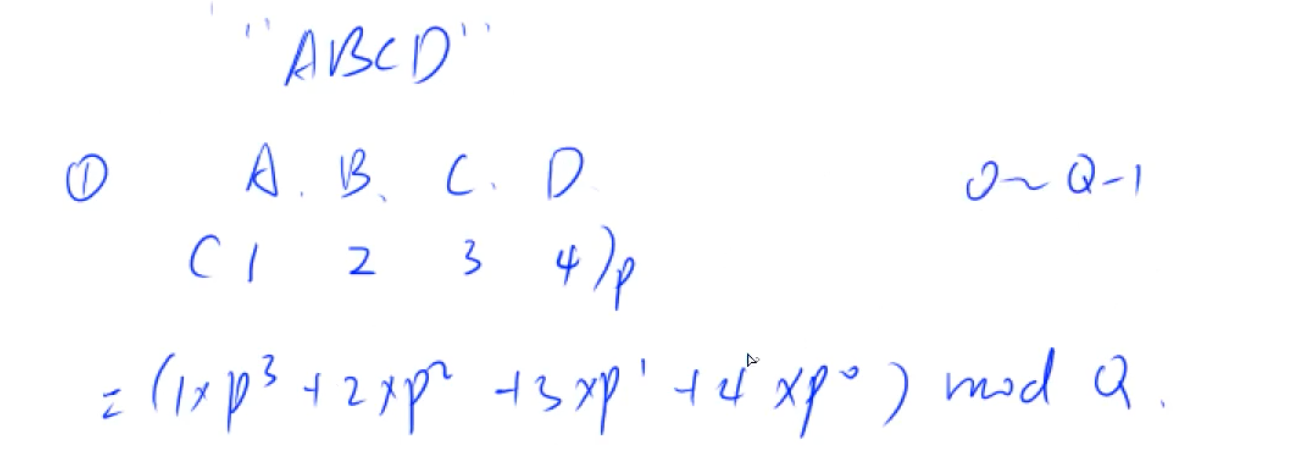 "ABCD"
① A. B. C. D 0~Q-1
(1 2 3 4)p
=(1×p³+2×p²+3×p¹+4×p⁰) mod Q.